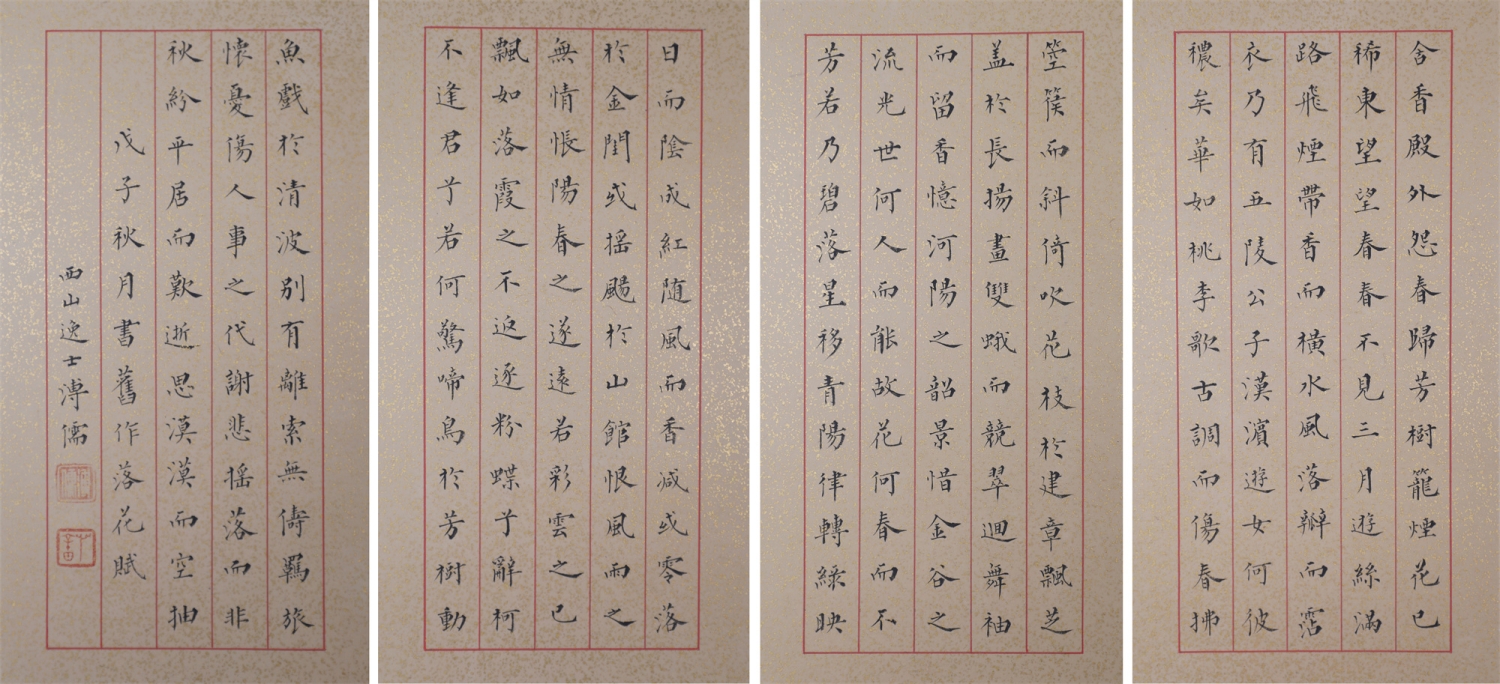 含香殿外怨春歸芳樹籠煙花已
稀東望望春春不見三月遊絲滿
路飛煙帶香而橫水風落瓣而霑
衣乃有五陵公子漢濱遊女何彼
穠矣華如桃李歌古調而傷春拂
箜篌而斜倚吹花枝於建章飄芝
盖於長揚畫雙蛾而競翠迴舞袖
而留香憶河陽之韶景惜金谷之
流光世何人而能故花何春而不
芳若乃碧落星移青陽律轉綠映
日而陰成紅随風而香減或零落
於金閨或揺颺於山館恨風雨之
無情悵陽春之遂遠若彩雲之已
飄如落霞之不返逐粉蝶兮辭柯
不逢君兮若何驚啼鳥於芳樹動
魚戲於清波别有離索無儔羈旅
懷憂傷人事之代謝悲揺落而非
秋紛平居而歎逝思漠漠而空抽
戊子秋月書舊作落花賦
西山逸士溥儒